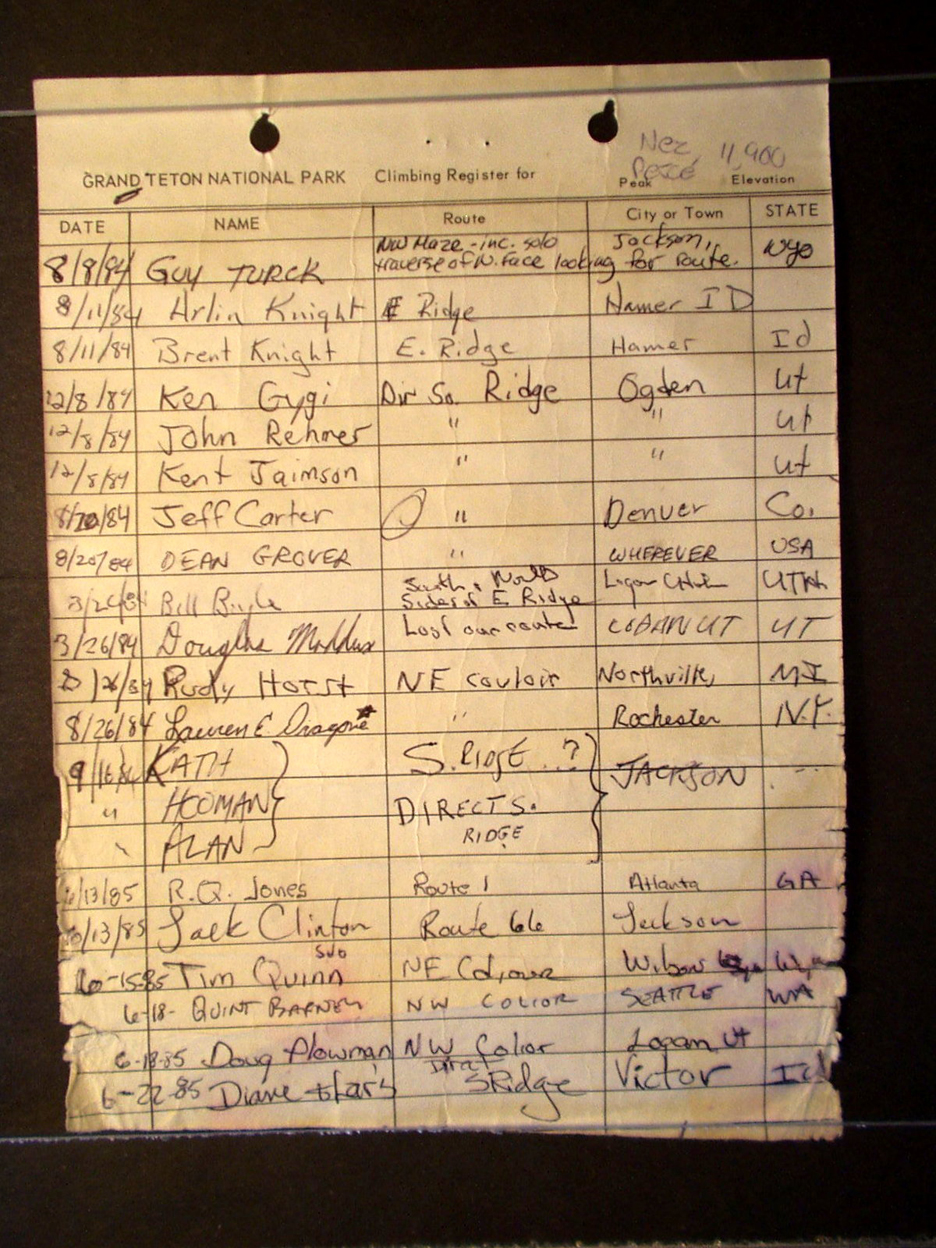 Nez 11,900
GRAND TETON NATIONAL PARK Climbing Register for Percé
Peak Elevation
DATE NAME Route City or Town STATE
NW Haze - inc. solo Jackson, Wyo
8/8/84 GUY TURCK traverse of N. face looking for route.
8/11/84 Arlin Knight E Ridge Hamer ID
8/11/84 Brent Knight E. Ridge Hamer Id
12/8/84 Ken Gygi Dir So. Ridge Ogden Ut
12/8/84 John Rehmer " " Ut
12/8/84 Kent Jaimson " " Ut
8/20/84 Jeff Carter " Denver Co.
8/20/84 DEAN GROVER " WHEREVER USA
South & North
Bill Sides of E Ridge Logan UTAH
3/26/84 Douglas Maddux Lost our route UT
Rudy Horst NE couloir Northville, MI
8/26/84 Lauren E. Dragone* " Rochester N.Y.
KATH } S. RIDGE..? } JACKSON
" HOOMAN DIRECT S.
ALAN RIDGE
/13/85 R.Q. Jones Route 1 Atlanta GA
/13/85 Jack Clinton Route 66 Jackson
solo
6-15-85 Tim Quinn NE Wilson
6-18- QUINT BARNEY NW COLIOR SEATTLE WA
6-18-85 Doug Plowman NW Colior Logan Ut
Dirct
6-22-85 Diane S Ridge Victor Id